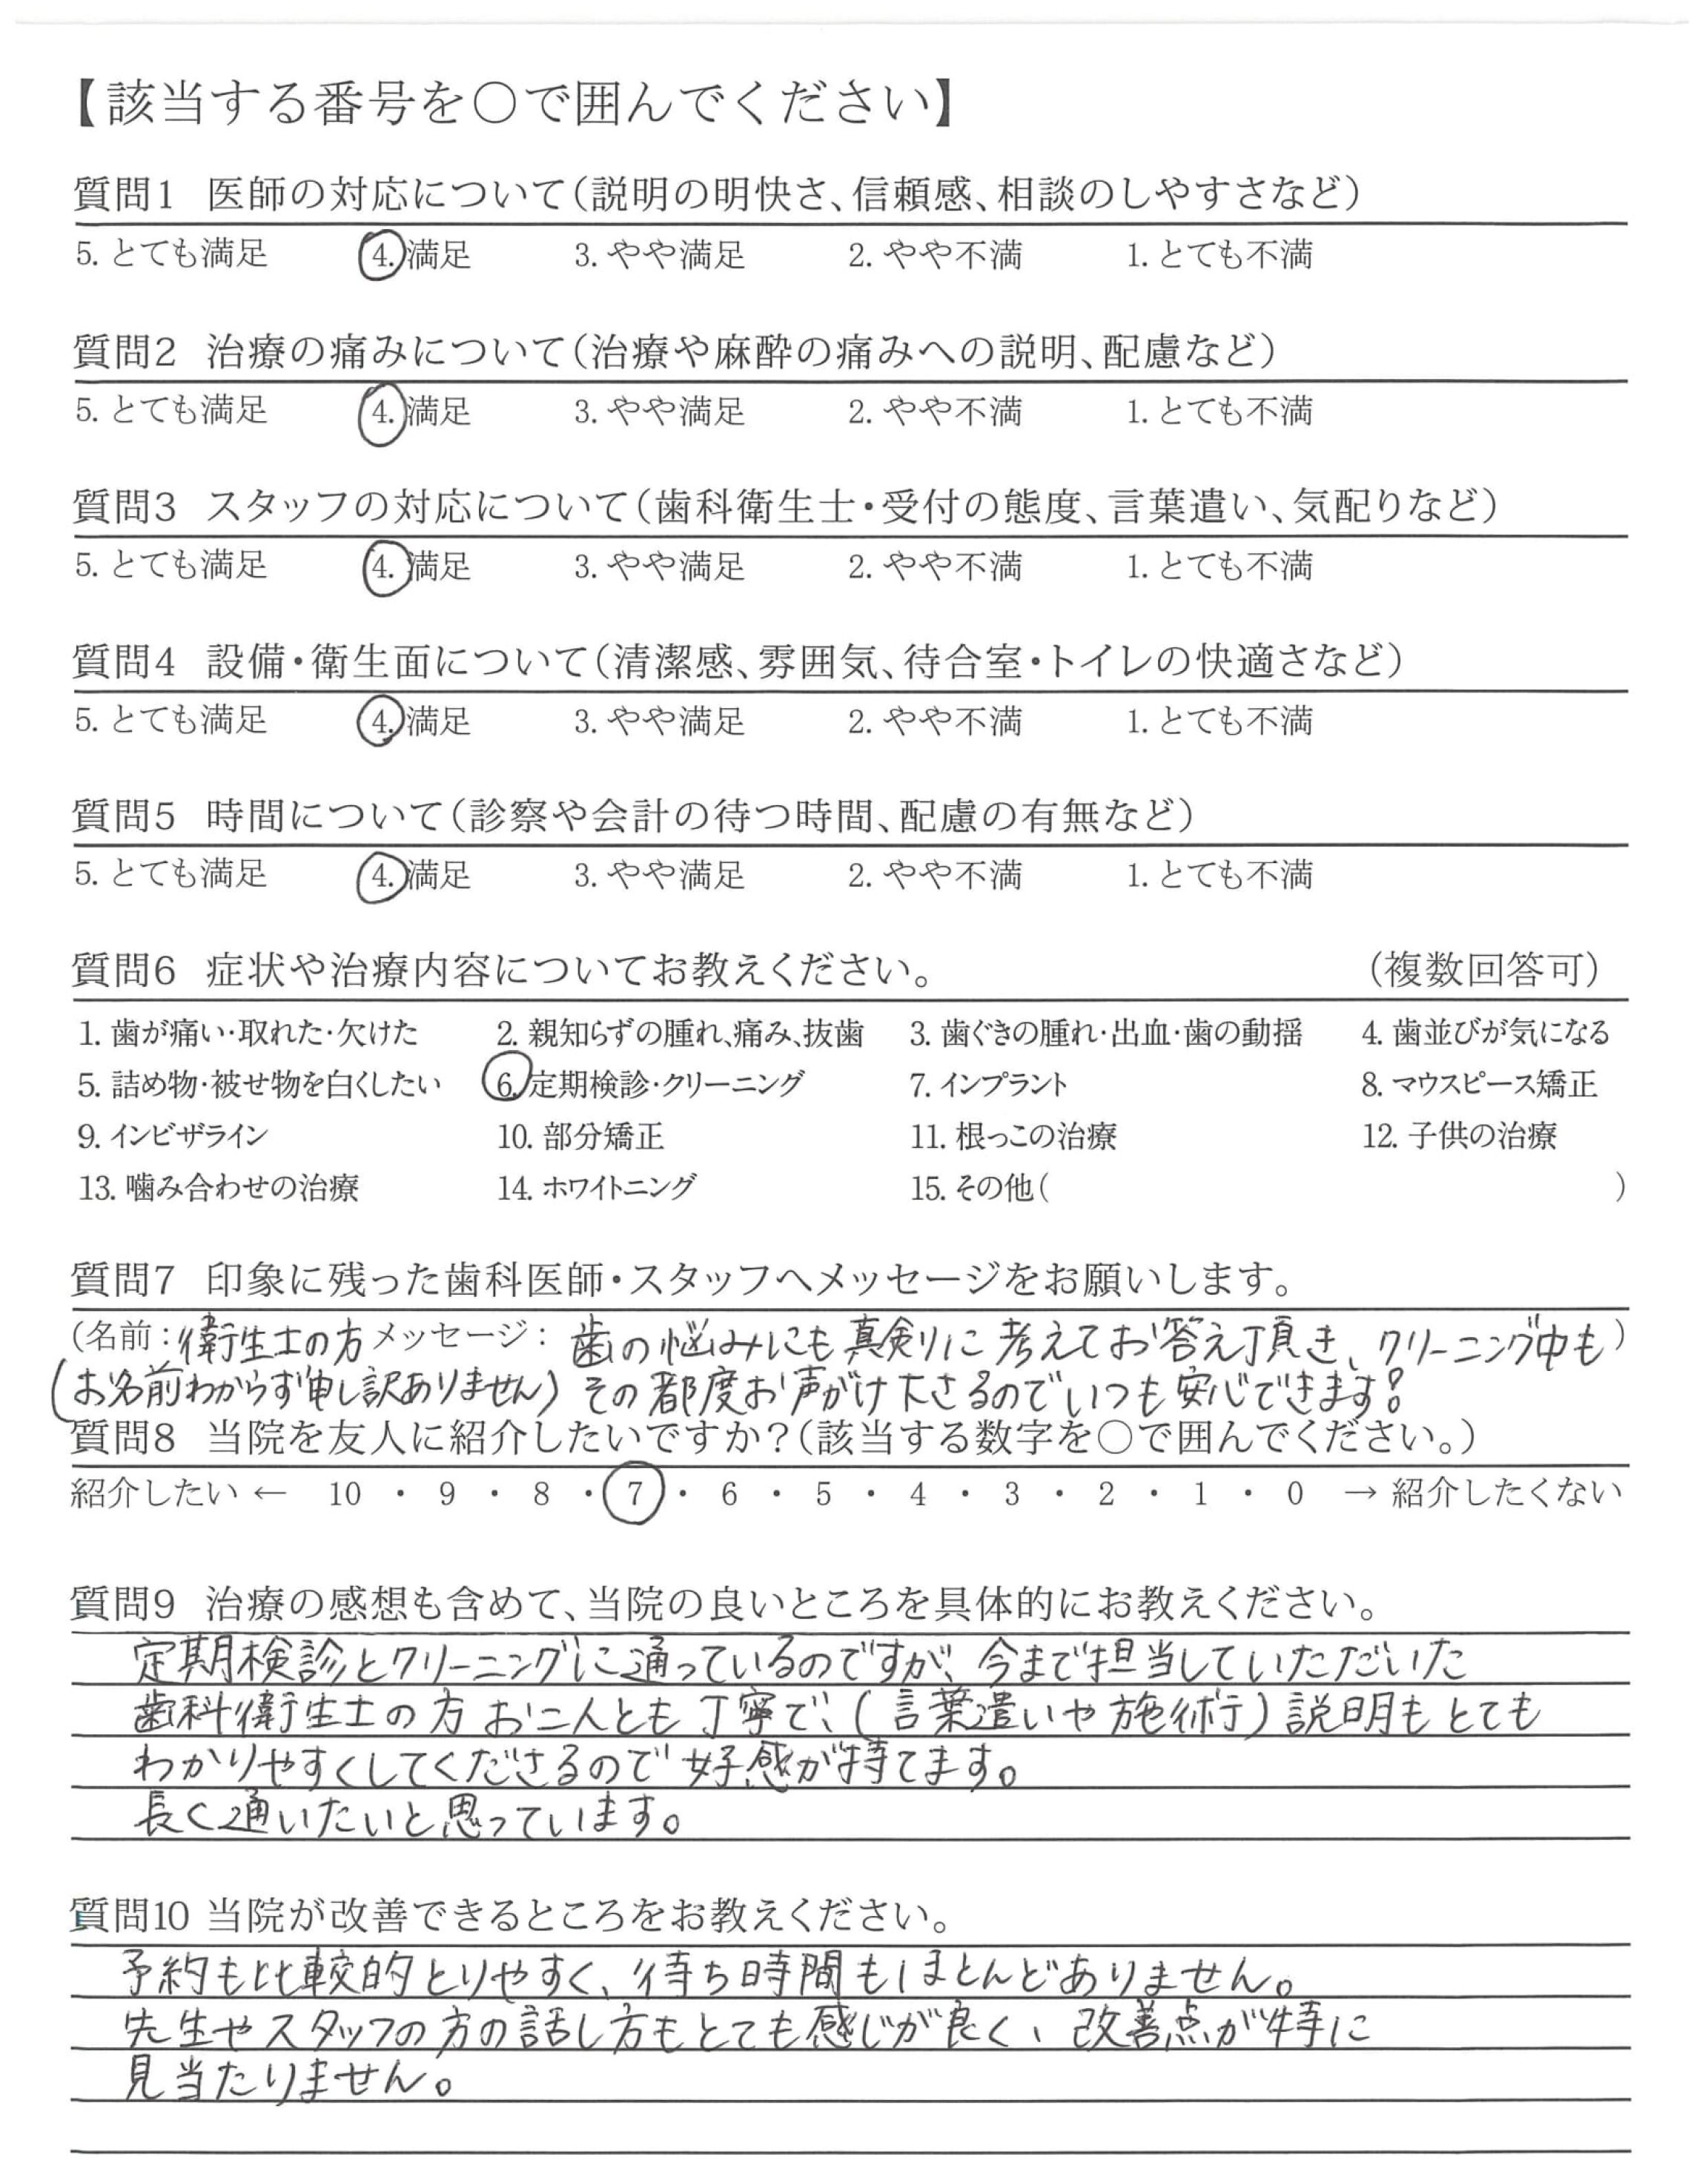 【該当する番号を○で囲んでください】
質問1 医師の対応について（説明の明快さ、信頼感、相談のしやすさなど）
5. とても満足 4. 満足 3. やや満足 2. やや不満 1. とても不満
質問2 治療の痛みについて（治療や麻酔の痛みへの説明、配慮など）
5. とても満足 4. 満足 3. やや満足 2. やや不満 1. とても不満
質問3 スタッフの対応について（歯科衛生士・受付の態度、言葉遣い、気配りなど）
5. とても満足 4. 満足 3. やや満足 2. やや不満 1. とても不満
質問4 設備・衛生面について（清潔感、雰囲気、待合室・トイレの快適さなど）
5. とても満足 4. 満足 3. やや満足 2. やや不満 1. とても不満
質問5 時間について（診察や会計の待つ時間、配慮の有無など）
5. とても満足 4. 満足 3. やや満足 2. やや不満 1. とても不満
質問6 症状や治療内容についてお教えください。 （複数回答可）
1. 歯が痛い・取れた・欠けた 2. 親知らずの腫れ、痛み、抜歯 3. 歯ぐきの腫れ・出血・歯の動揺 4. 歯並びが気になる
5. 詰め物・被せ物を白くしたい 6. 定期検診・クリーニング 7. インプラント 8. マウスピース矯正
9. インビザライン 10. 部分矯正 11. 根っこの治療 12. 子供の治療
13. 噛み合わせの治療 14. ホワイトニング 15. その他（ ）
質問7 印象に残った歯科医師・スタッフへメッセージをお願いします。
（名前：衛生士の方 メッセージ：歯の悩みにも真剣に考えてお答え頂き、クリーニング中も）
（お名前わからず申し訳ありません）その都度お声がけ下さるのでいつも安心できます！
質問8 当院を友人に紹介したいですか？（該当する数字を○で囲んでください。）
紹介したい ← 10 ・ 9 ・ 8 ・ 7 ・ 6 ・ 5 ・ 4 ・ 3 ・ 2 ・ 1 ・ 0 → 紹介したくない
質問9 治療の感想も含めて、当院の良いところを具体的にお教えください。
定期検診とクリーニングに通っているのですが、今まで担当していただいた
歯科衛生士の方お二人とも丁寧で、（言葉遣いや施術）説明もとても
わかりやすくしてくださるので好感が持てます。
長く通いたいと思っています。
質問10 当院が改善できるところをお教えください。
予約も比較的とりやすく、待ち時間もほとんどありません。
先生やスタッフの方の話し方もとても感じが良く、改善点が特に
見当たりません。